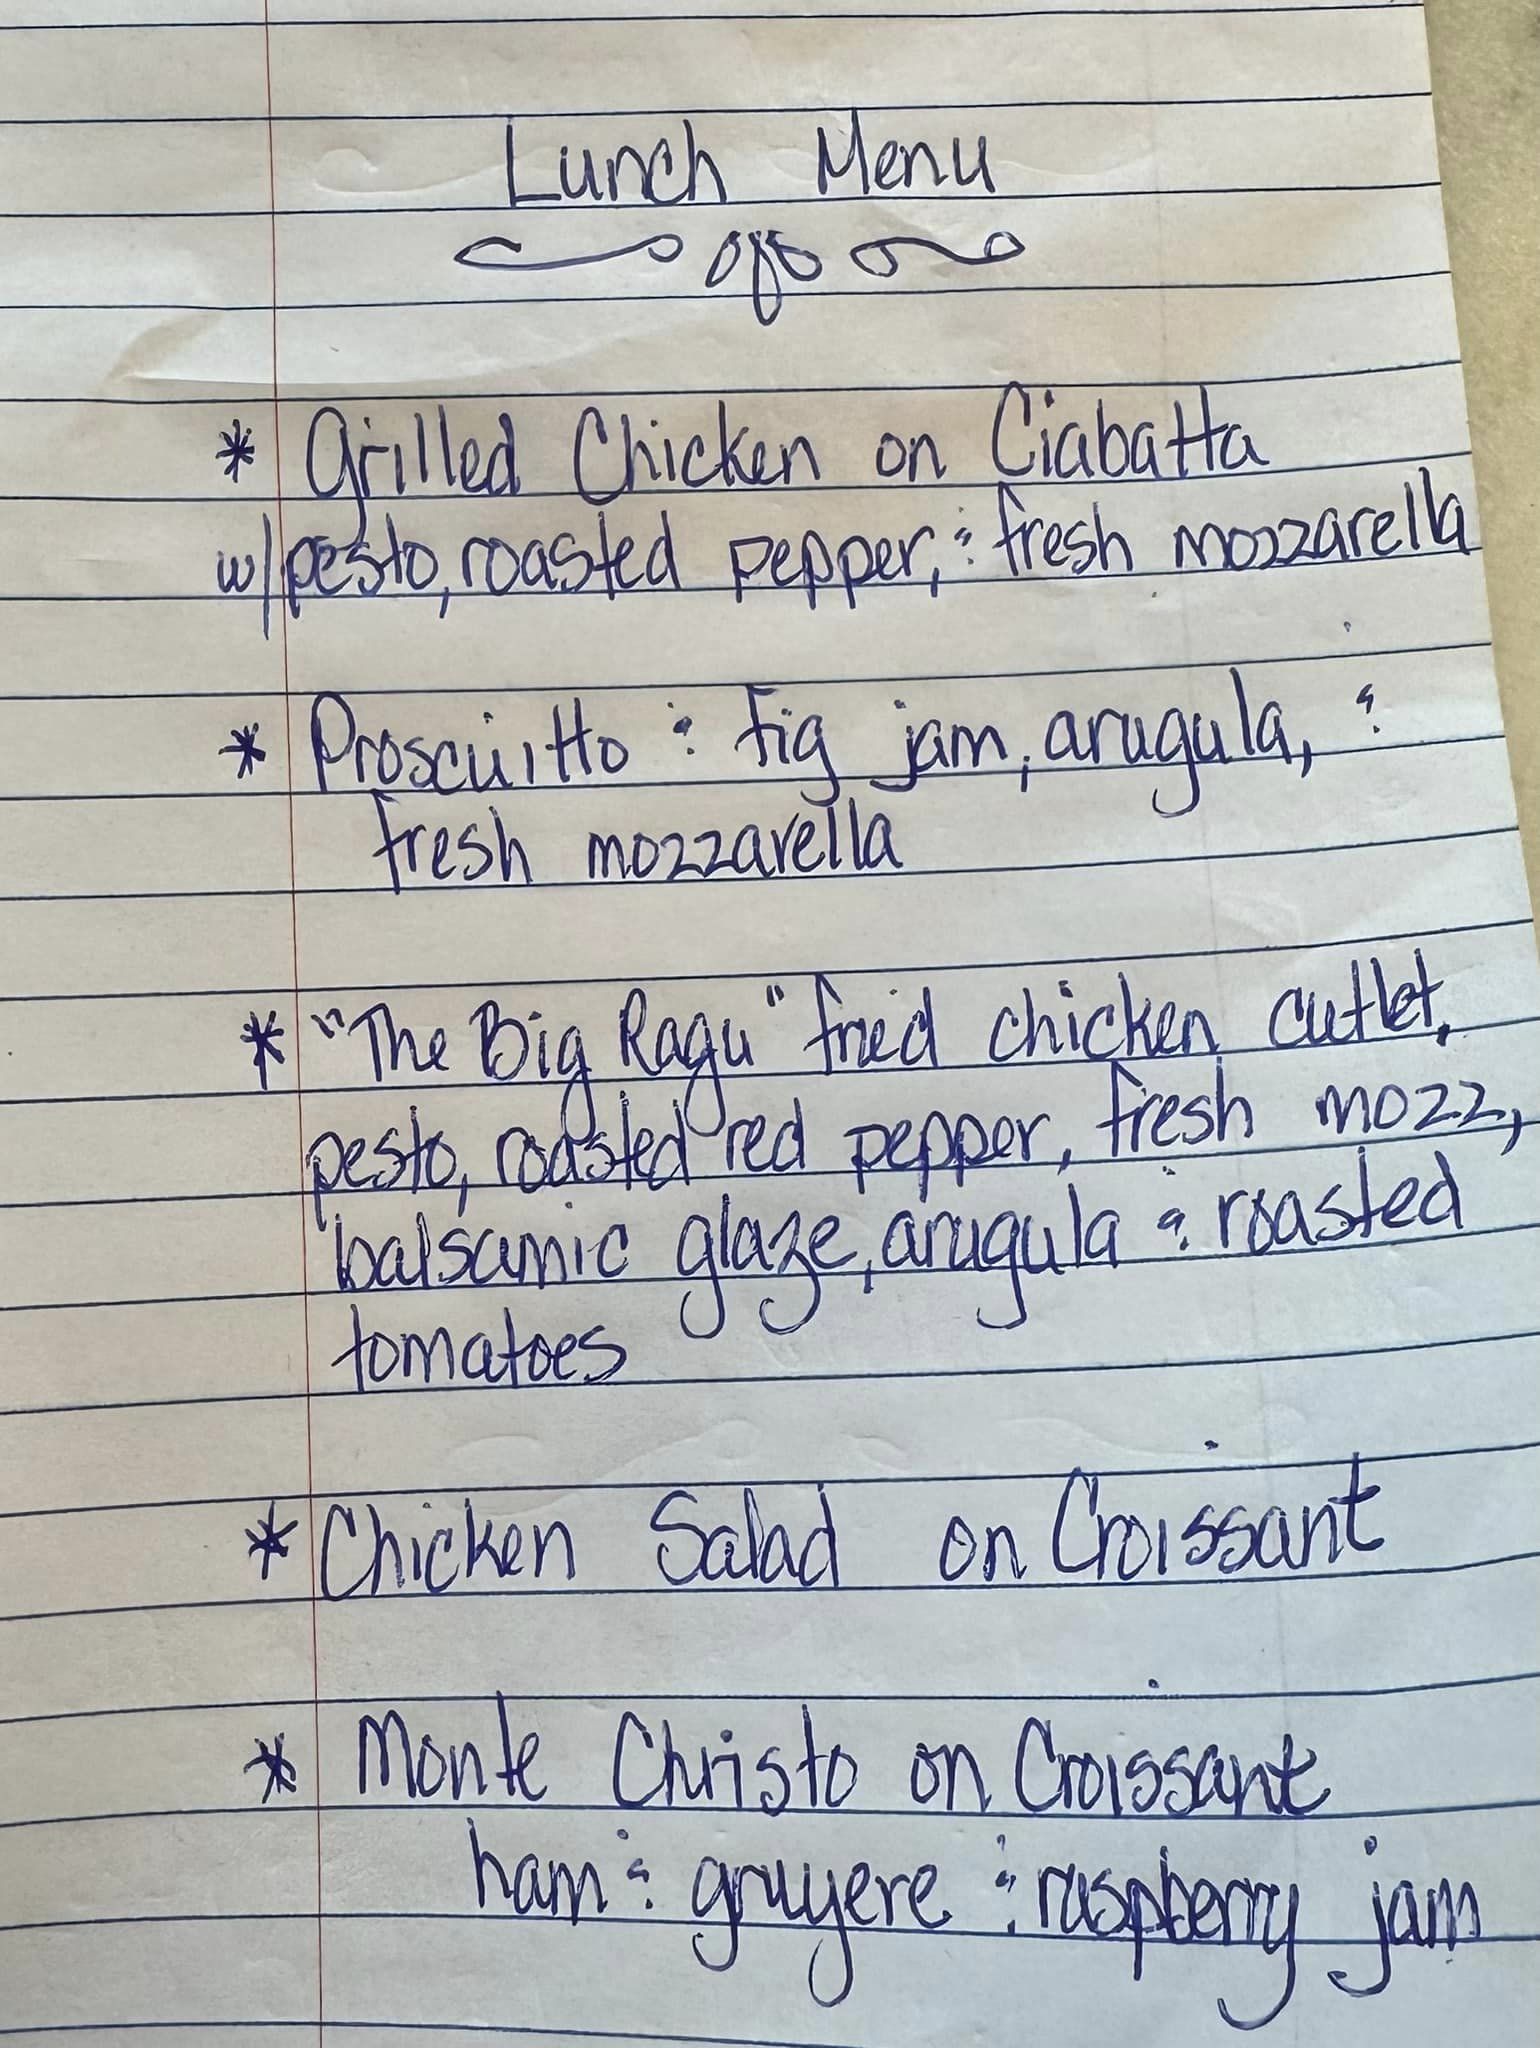 Lunch Menu
* Grilled Chicken on Ciabatta
w/pesto, roasted pepper, & fresh mozzarella
* Proscuitto & fig jam, arugula, &
fresh mozzarella
* "The Big Ragu" fried chicken cutlet,
pesto, roasted red pepper, fresh mozz,
balsamic glaze, arugula & roasted
tomatoes
* Chicken Salad on Croissant
* Monte Christo on Croissant
ham & gruyere & raspberry jam